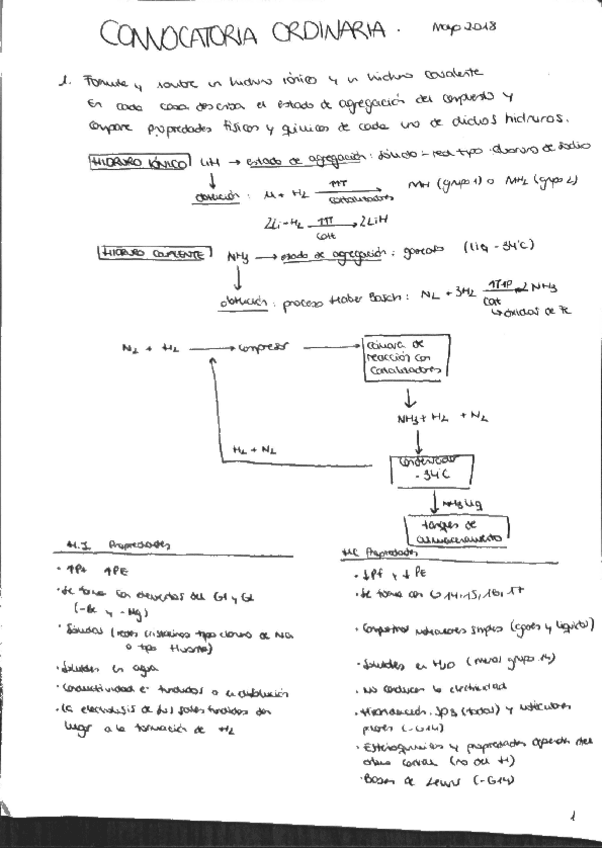 CONVOCATORIA ORDINARIA. Mayo 2018
1. Formule y nombre un hidruro iónico y un hidruro covalente
En cada caso, describa el estado de agregación del compuesto y
compare propiedades físicas y químicas de cada uno de dichos hidruros.
HIDRURO IÓNICO LiH → estado de agregación: sólido - red tipo cloruro de sodio
obtención: M + H2 → MH (grupo 1) o MH2 (grupo 2)
↑↑T
catalizadores
2Li-H2 → 2LiH
↑↑T
cat
HIDRURO COVALENTE NH3 → estado de agregación: gaseoso (liq -34ºC)
obtención: proceso Haber Bosch: N2 + 3H2 → 2NH3
↑T↑P
cat
↳ óxidos de Fe
N2 + H2 → compresor → cámara de
reacción con
catalizadores
NH3 + H2 + N2
H2 + N2
condensador
-34ºC
NH3 liq
tanques de
almacenamiento
H.I. Propiedades
· ↑Pf ↑PE
· Se forma con elementos del G1 y G2
(-Be y -Mg)
· Sólidos (redes cristalinas tipo cloruro de Na
o tipo fluorita)
· Solubles en agua
· Conductividad e- fundidos o en disolución
· La electrolisis de sus sales fundidas dan
lugar a la formación de H2
HC Propiedades
· ↓Pf y ↓PE
· Se forma con G14, 15, 16, 17
· Compuestos moleculares simples (gases y líquidos)
· Solubles en H2O (menos grupo 14)
· No conducen la electricidad
· Hibridación sp3 (todos) y moléculas
polares (-G14)
· Estequiometrías y propiedades dependen del
átomo central (no del H)
· Bases de Lewis (-G14)
1